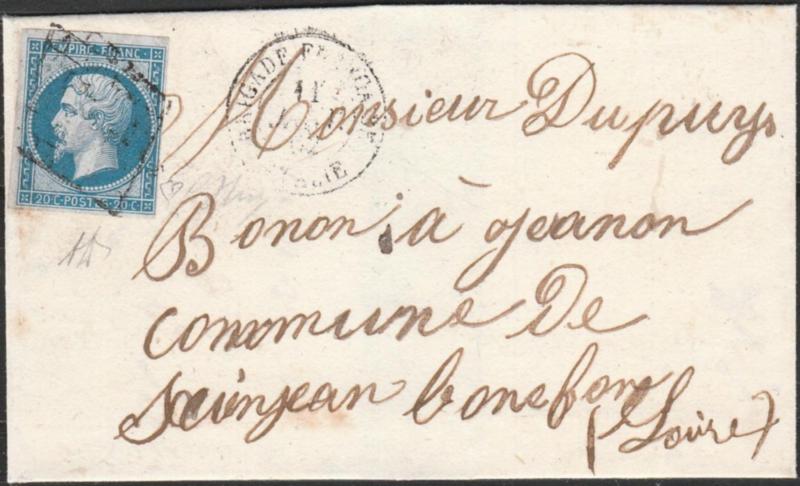 EMPIRE · FRANC ·
20 C · POSTES · 20 C
BRIGADE FRANÇAISE
ITALIE
Monsieur Dupuys
Bonon à ojeanon
commune De
Seinjean bonsfons
(Loire)